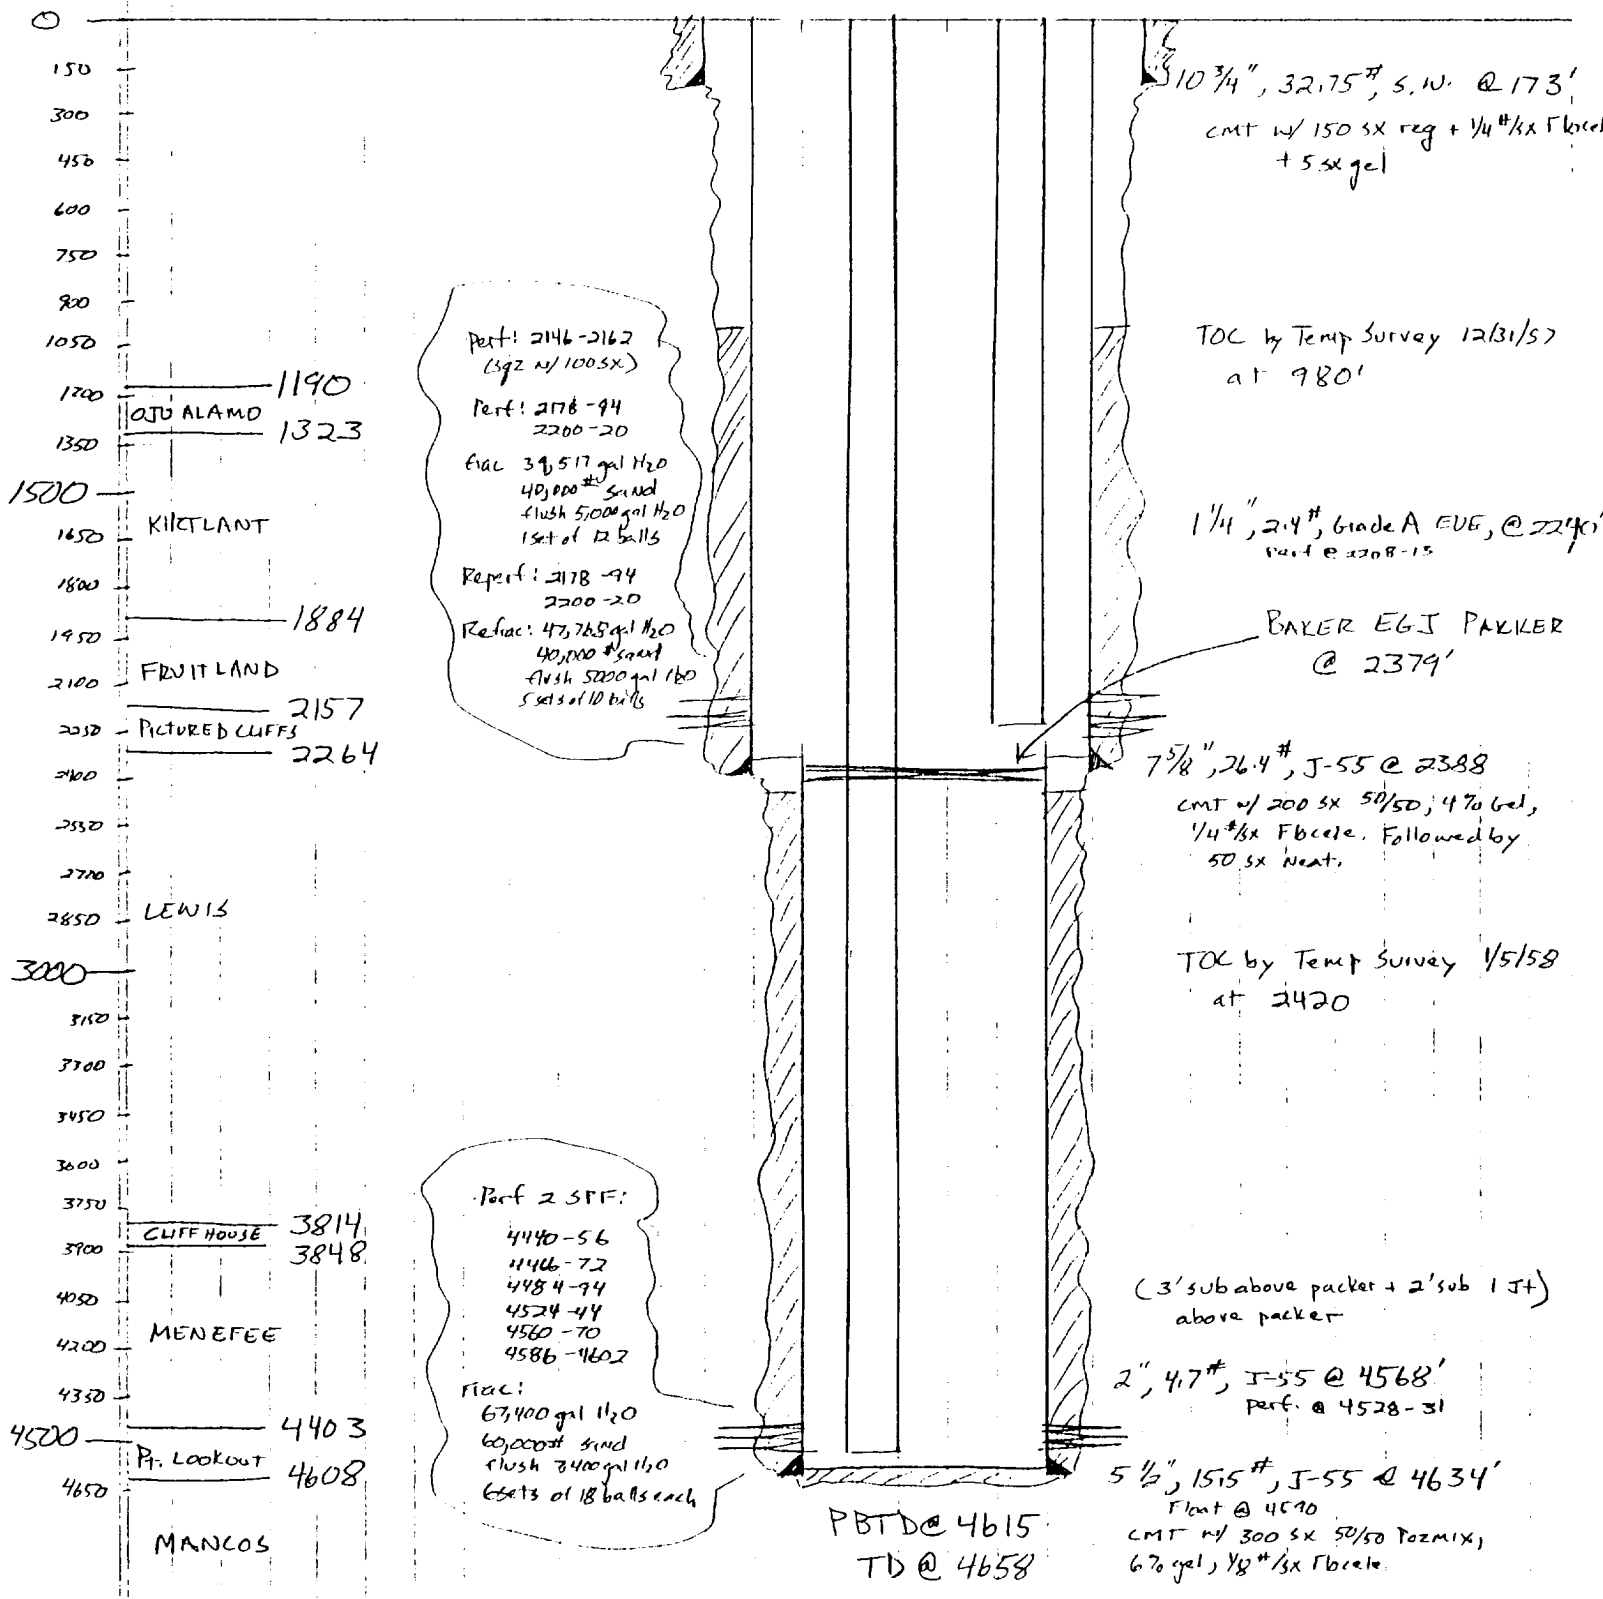 0
150
300
450
600
750
900
1050
1200
1350
1500
1650
1800
1950
2100
2250
2400
2550
2700
2850
3000
3150
3300
3450
3600
3750
3900
4050
4200
4350
4500
4650
1190
OJO ALAMO
1323
KIRTLANT
1884
FRUITLAND
2157
PICTURED CLIFFS
2264
LEWIS
3814
CLIFF HOUSE
3848
MENEFEE
4403
Pt. LOOKOUT
4608
MANCOS
Perf: 2146-2162
(sqz w/ 100 sx)
Perf: 2178-94
2200-20
frac 39,517 gal H2O
40,000# sand
flush 5,000 gal H2O
1 set of 12 balls
Reperf: 2178-94
2200-20
Refrac: 47,765 gal H2O
40,000 # sand
flush 5000 gal H2O
5 sets of 10 balls
Perf 2 SPF:
4440-56
4466-72
4484-94
4524-44
4560-70
4586-4602
Frac:
67,400 gal H2O
60,000# sand
flush 8400 gal H2O
6 sets of 18 balls each
PBTD @ 4615
TD @ 4658
10 3/4", 32.75#, S.W. @ 173'
CMT w/ 150 sx reg + 1/4 #/sx Flocel
+ 5 sx gel
TOC by Temp Survey 12/31/57
at 980'
1 1/4", 2.4#, Grade A EUE, @ 2240'
Perf @ 2208-15
BAKER EGJ PAKKER
@ 2379'
7 5/8", 26.4#, J-55 @ 2388
CMT w/ 200 sx 50/50, 4% Gel,
1/4 #/sx Flocele. Followed by
50 sx Neat.
TOC by Temp Survey 1/5/58
at 2420
(3' sub above packer + 2' sub 1 Jt)
above packer
2", 4.7#, J-55 @ 4568'
perf. @ 4528-31
5 1/2", 15.5#, J-55 @ 4634'
Float @ 4590
CMT w/ 300 sx 50/50 Pozmix,
6% gel, 1/8 #/sx Flocele